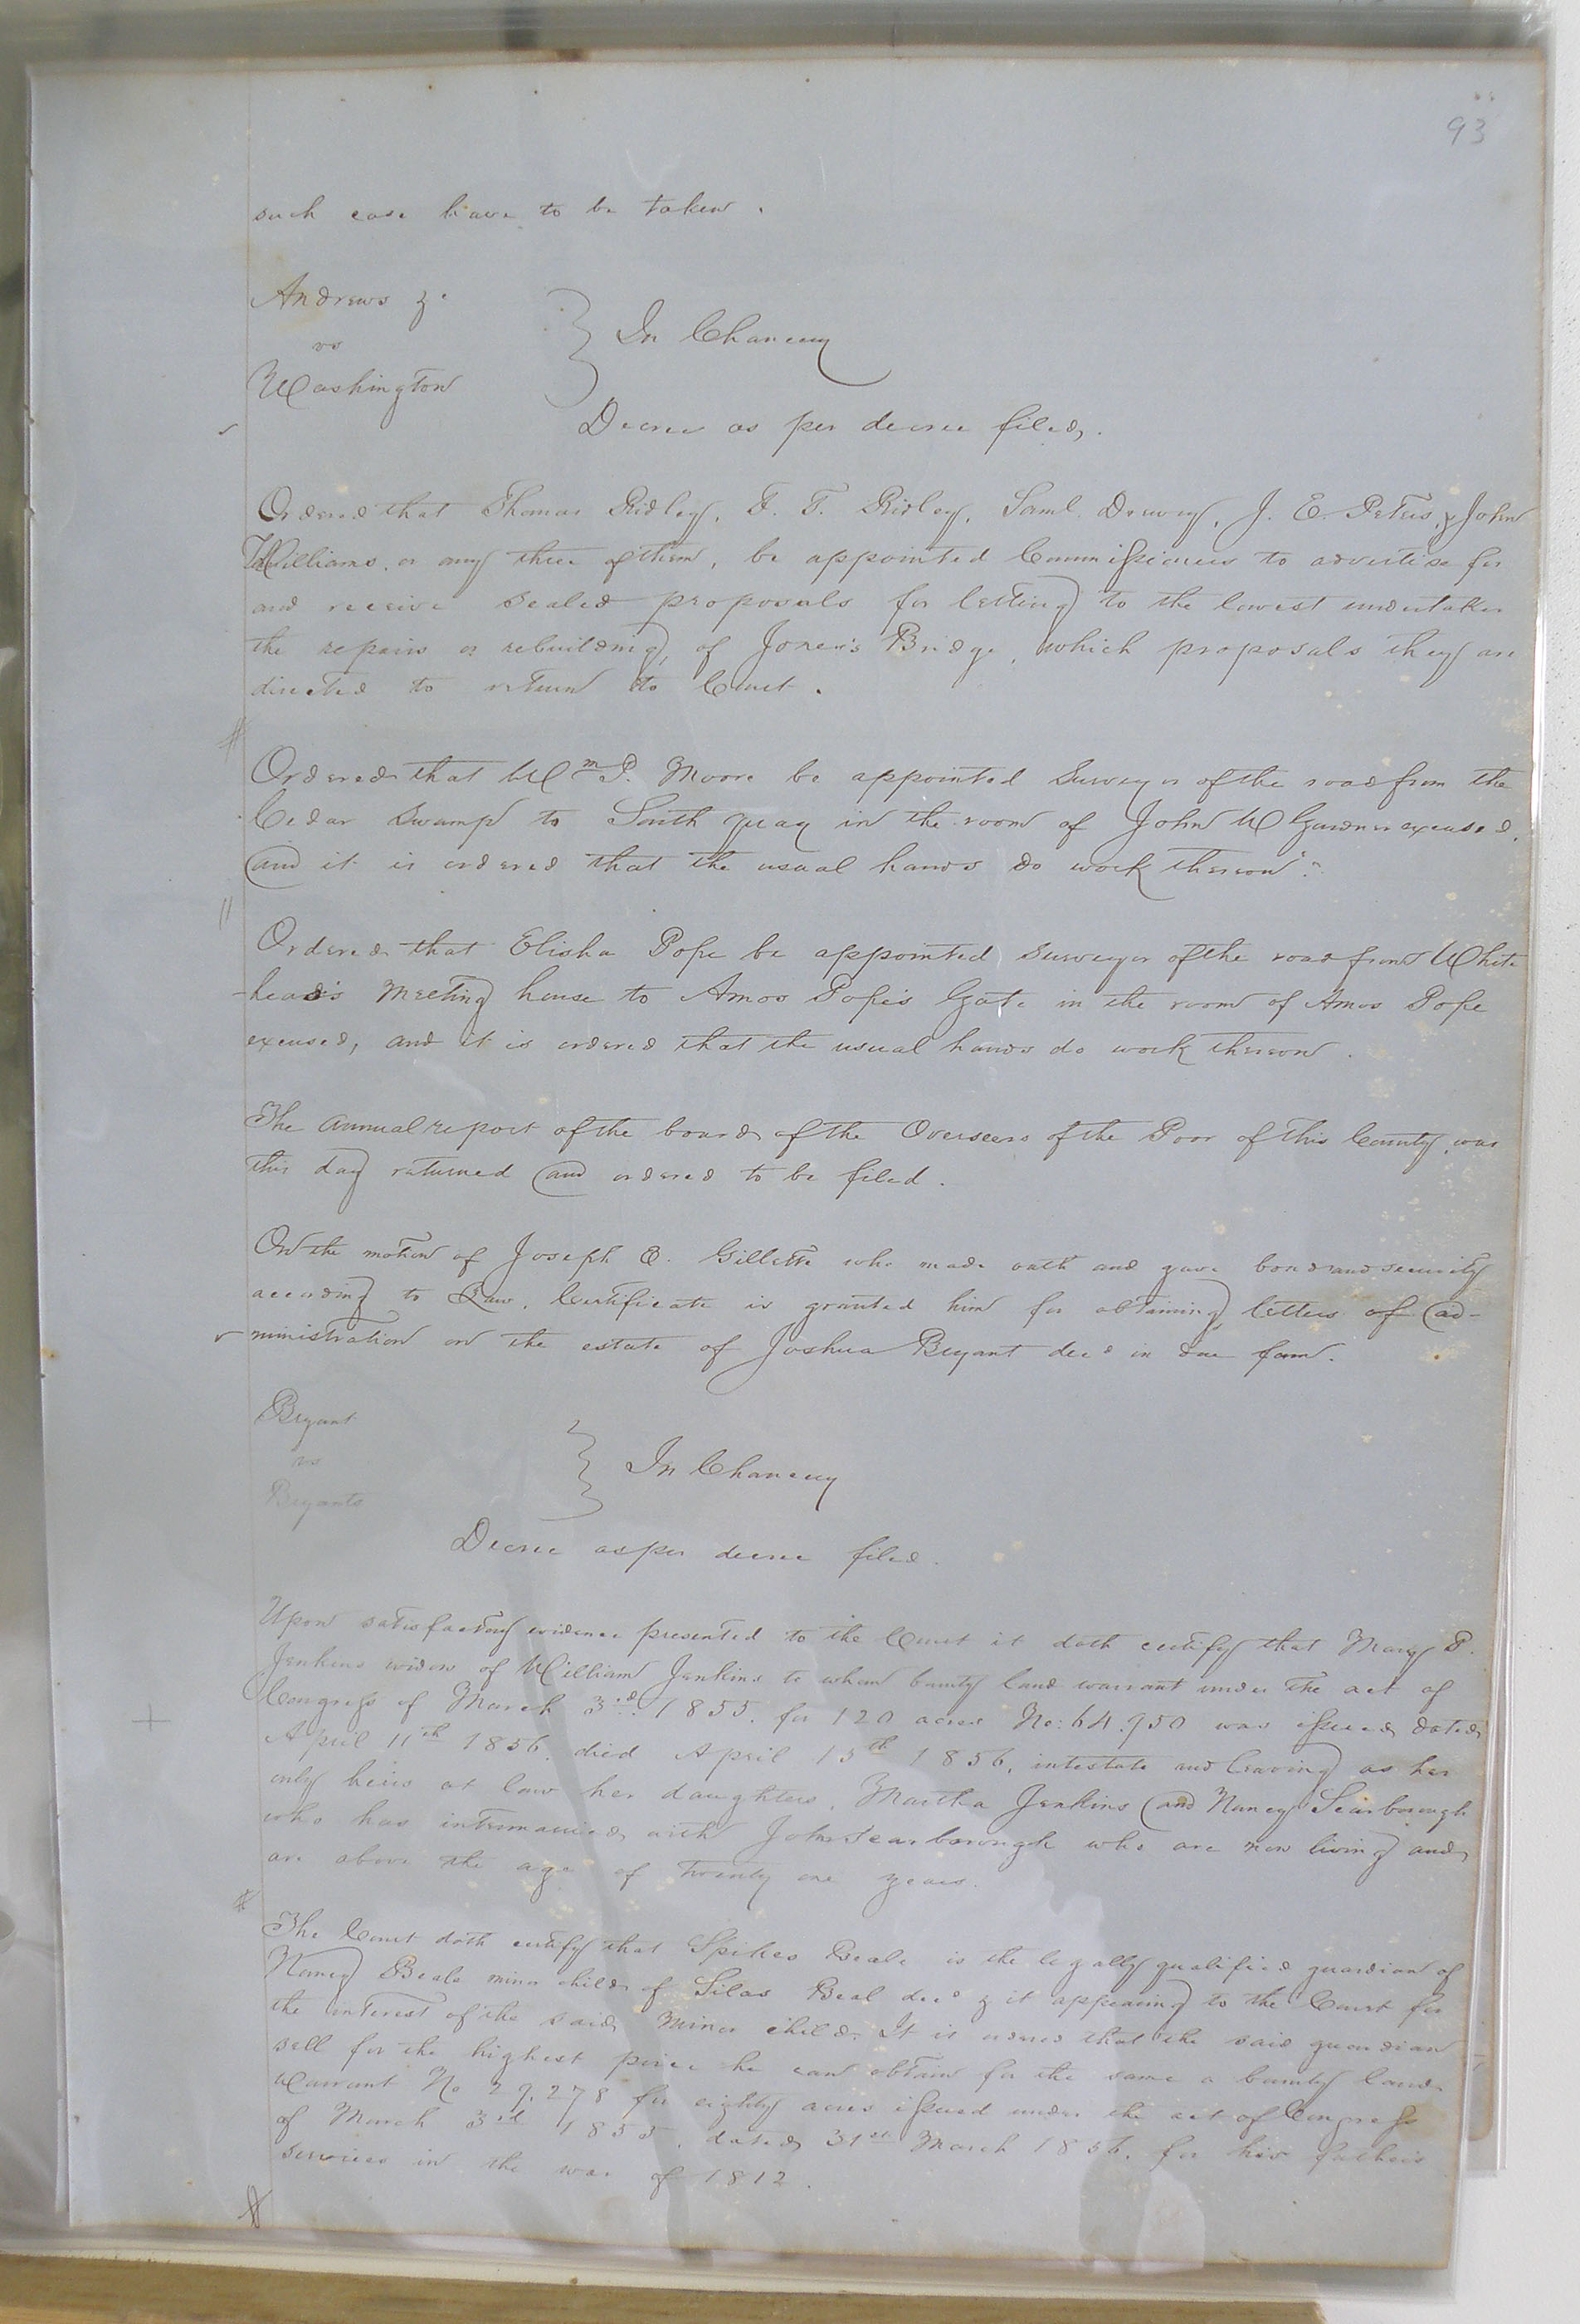 93
such case have to be taken.
Andrews &c
vs
Washington
In Chancery
Decree as per decree filed.
Ordered that Thomas Ridley, F. T. Ridley, Saml. Drewry, J. E. Peters, & John
Williams, or any three of them, be appointed Commissioners to advertise for
and receive sealed proposals for letting to the lowest undertaker
the repairs or rebuilding, of Jones's Bridge, which proposals they are
directed to return to Court.
Ordered that Wm P. Moore be appointed Surveyor of the road from the
Cedar Swamp to South Quay in the room of John W Gardner excused,
and it is ordered that the usual hands do work thereon.
Ordered that Elisha Pope be appointed Surveyor of the road from White
-head's Meeting house to Amos Pope's Gate in the room of Amos Pope
excused, and it is ordered that the usual hands do work thereon.
The annual report of the board of the Overseers of the Poor of this County, was
this day returned and ordered to be filed.
On the motion of Joseph E. Gillette who made oath and gave bond and security
according to Law, Certificate is granted him for obtaining letters of ad-
ministration on the estate of Joshua Bryant decd in due form.
Bryant
vs
Bryants
In Chancery
Decree as per decree filed.
Upon satisfactory evidence presented to the Court it doth certify that Mary P.
Jenkins widow of William Jenkins to whom bounty land warrant under the act of
Congress of March 3rd. 1855. for 120 acres No: 64.950 was issued, dated
April 11th 1856. died April 15th 1856, intestate and leaving as her
only heirs at law her daughters, Martha Jenkins and Nancy Scarborough
who has intermarried with John Scarborough who are now living and
are above the age of twenty one years.
The Court doth certify that Spikes Beale is the legally qualified guardian of
Nancy Beale minor child of Silas Beal decd & it appearing to the Court for
the interest of the said Minor child. It is ordered that the said guardian
sell for the highest price he can obtain for the same a bounty land
Warrant No 29.278 for eighty acres issued under the act of Congress
of March 3rd 1855, dated 31st March 1856. for his father's
services in the war of 1812.